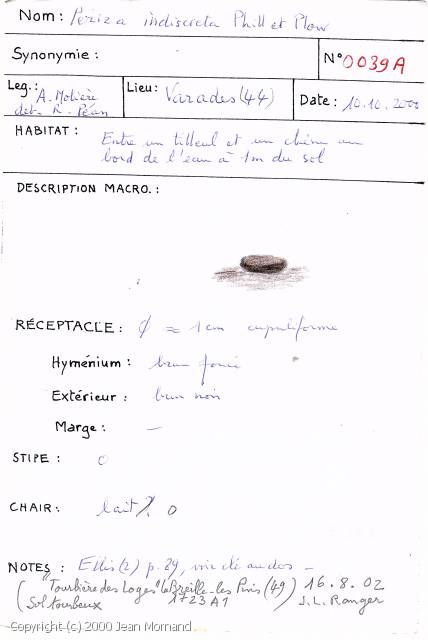 Nom : Peziza indiscreta Phill et Plow
Synonymie :
N° 0039A
Leg.: A. Molière
det. R. Péan
Lieu : Varades (44)
Date : 10.10.2000
HABITAT : Entre un tilleul et un chêne au
bord de l'eau à 1m du sol
DESCRIPTION MACRO. :
RÉCEPTACLE : Ø ≈ 1 cm cupuliforme
Hyménium : brun foncé
Extérieur : brun noir
Marge : —
STIPE : 0
CHAIR : lait % 0
NOTES : Ellis (2) p. 29, voir clé au dos —
( "Tourbière des Loges" la Breille-les Pins (49) 16.8.02
Sol tourbeux 1723A1 J.L. Ranger
Copyright (c) 2000 Jean Mornand